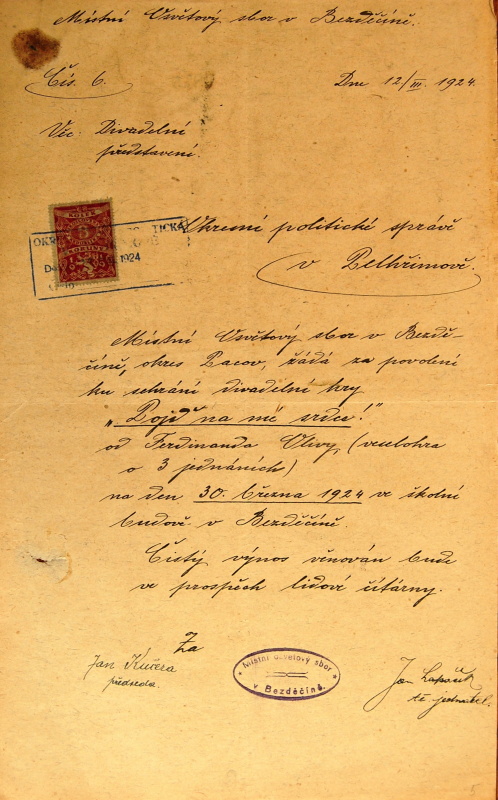 Místní Osvětový sbor v Bezděčíně.
Čís. 6.
Dne 12/III. 1924.
Věc: Divadelní
představení.
Okresní politické správě
v Pelhřimově.
5
1924
Místní Osvětový sbor v Bezdě-
číně, okres Pacov, žádá za povolení
ku sehrání divadelní hry
„Pojď na mé srdce!"
od Ferdinanda Olivy, (veselohra
o 3 jednáních)
na den 30. března 1924 ve školní
budově v Bezděčíně.
Čistý výnos věnován bude
ve prospěch lidové čítárny.
Za
Jan Kučera
předseda.
Místní osvětový sbor
v Bezděčíně.
Jan
tč jednatel.